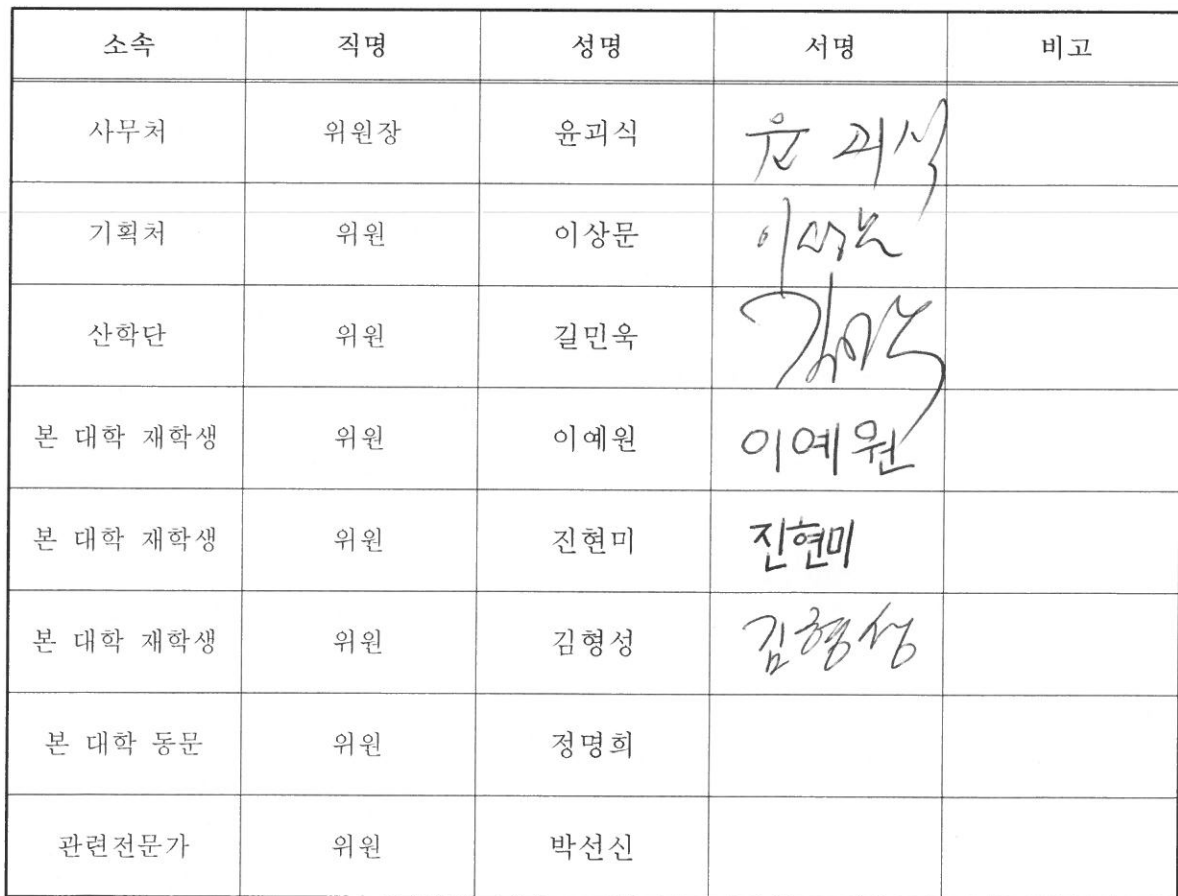 소속 직명 성명 서명 비고
사무처 위원장 윤괴식 윤괴식
기획처 위원 이상문 이상문
산학단 위원 길민욱
본 대학 재학생 위원 이예원 이예원
본 대학 재학생 위원 진현미 진현미
본 대학 재학생 위원 김형성 김형성
본 대학 동문 위원 정명희
관련전문가 위원 박선신